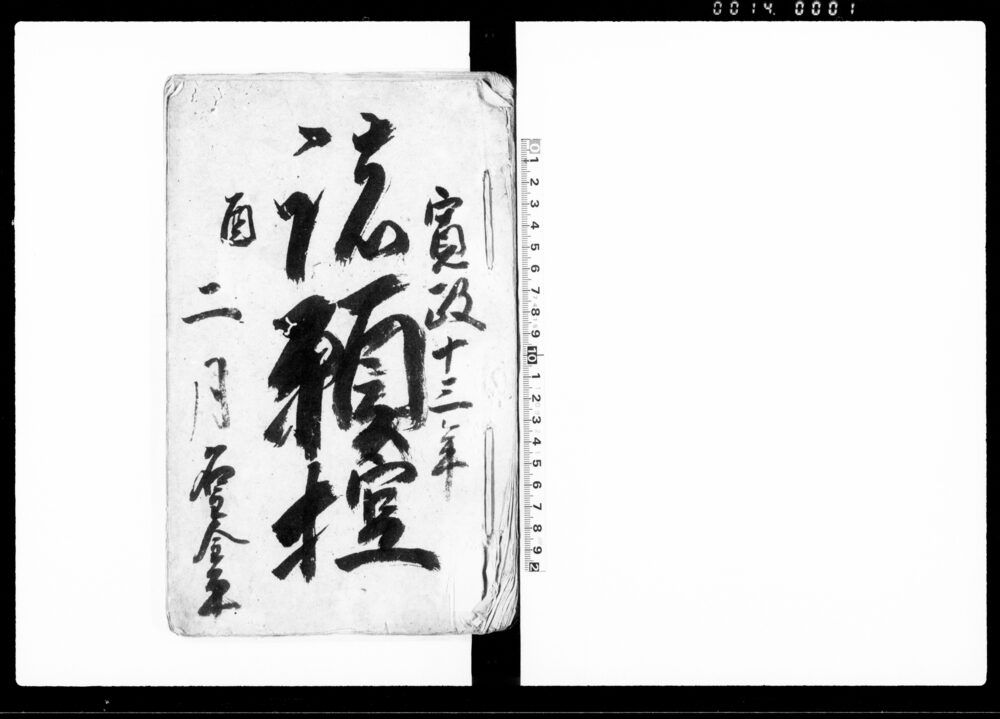 0014 0001
寛政十三年
諸願控
酉二月
0 1 2 3 4 5 6 7 8 9 10 1 2 3 4 5 6 7 8 9 2